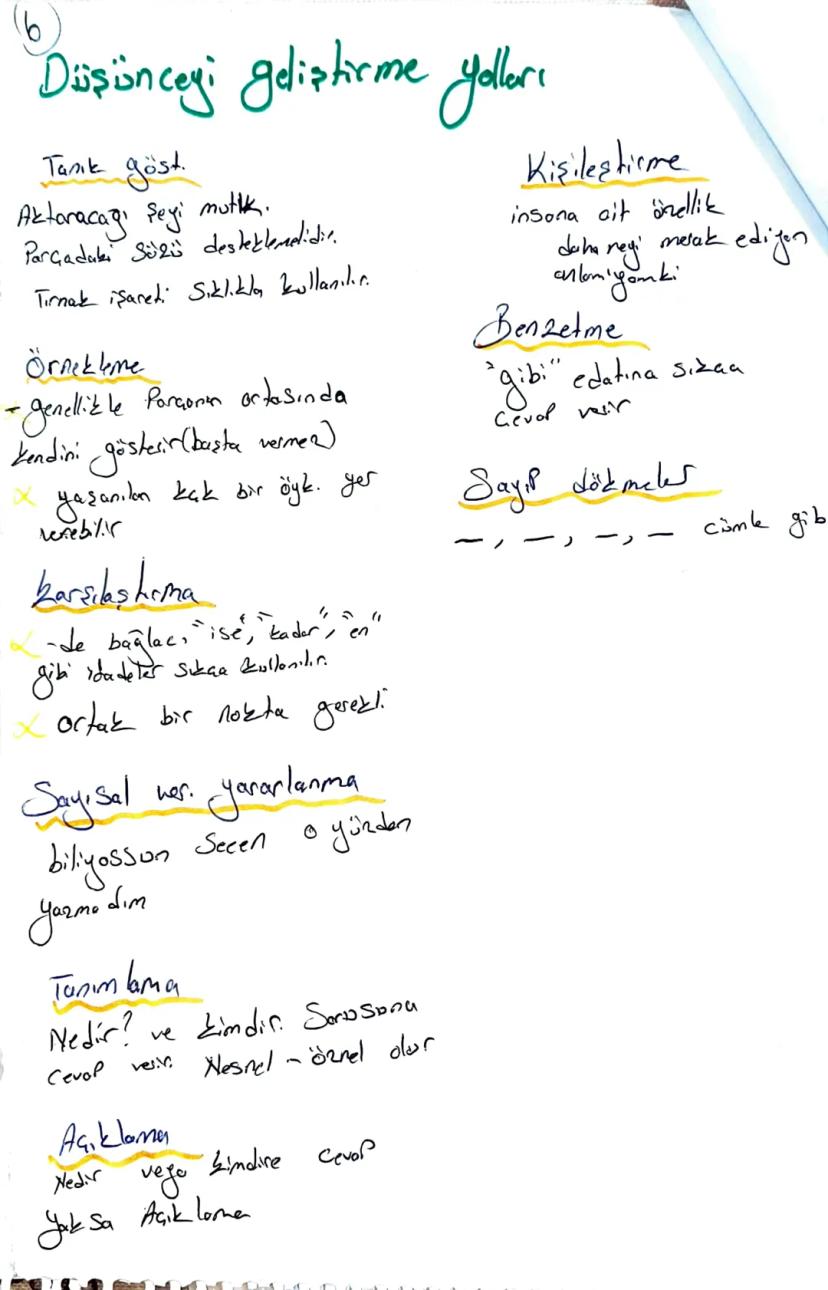 6
Düşünceyi geliştirme yolları
Tanık göst.
Aktaracağı şeyi mutlk.
Parçadaki sözü desteklemelidir.
Tırnak işareti sıklıkla kullanılır.
Örnekleme
- genellikle Parçanın ortasında
kendini gösterir (başta vermez)
x yaşanılan kak bir öyk. yer
verebilir
Karşılaştırma
x -de bağlac, "ise", "kadar", "en"
gibi ifadeler sıkça kullanılır.
x ortak bir nokta gerekli
Sayısal ver. yararlanma
biliyossun Secen o yüzden
yazmadım
Tanımlama
Nedir? ve kimdir. Sorusuna
cevap verir. Nesnel - öznel olur
Açıklama
Nedir veya kimdire cevap
yoksa Açıklama
Kişileştirme
insana ait özellik
daha neyi merak ediyon
anlamıyomki
Benzetme
"gibi" edatına sıkça
cevap verir
Sayıp dökmeler
–, –, –, – cümle gib